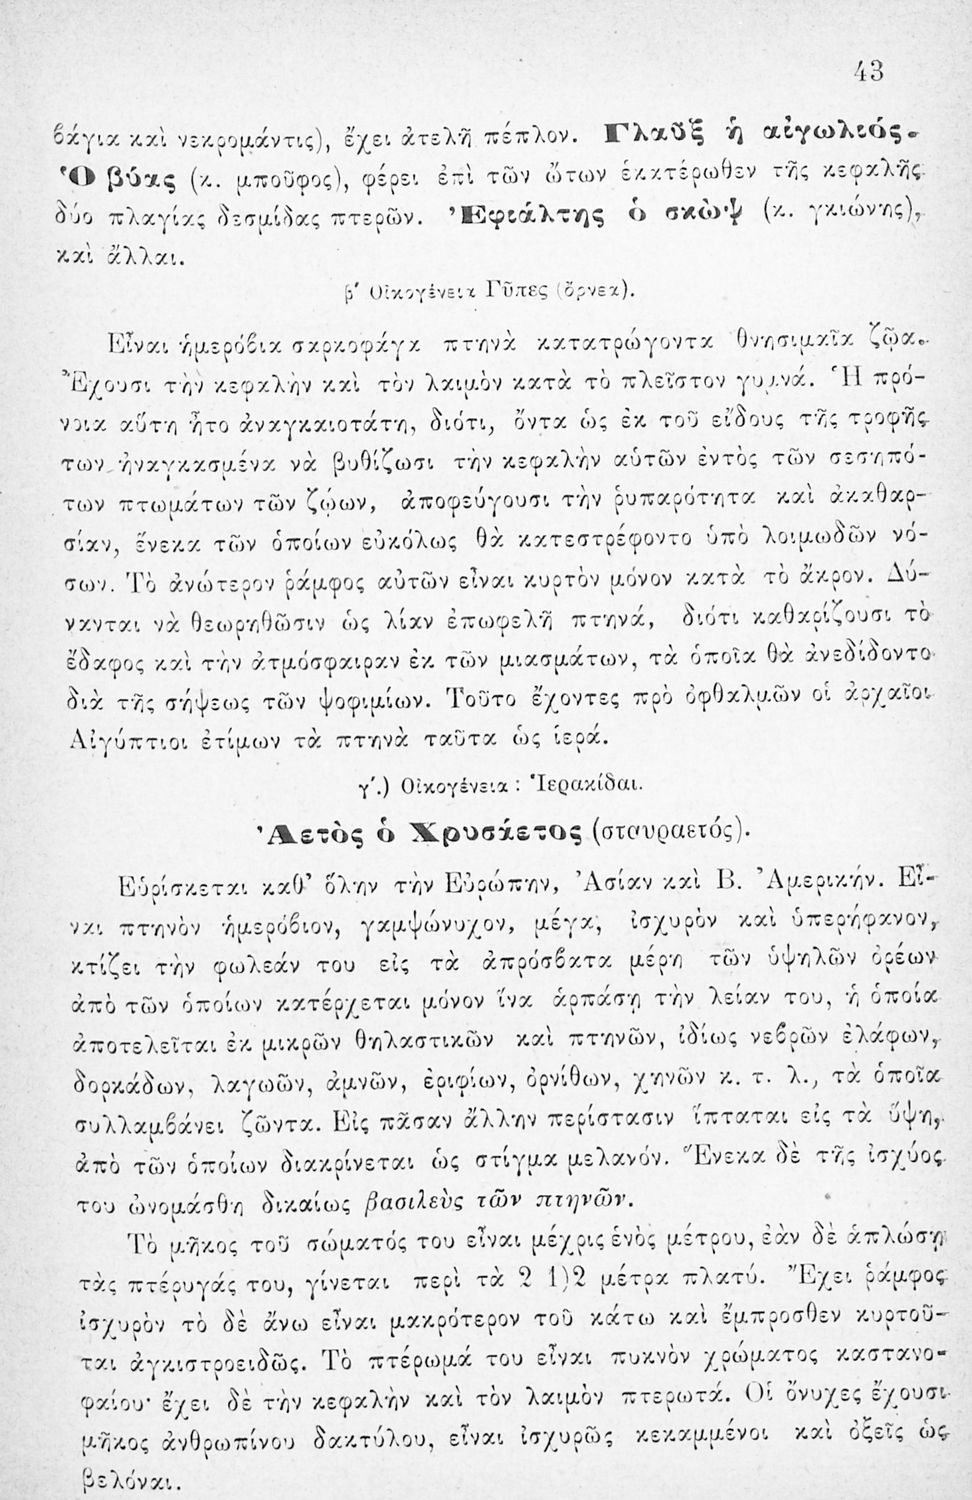 43
βάγια καὶ νεκρομάντις), ἔχει ἀτελῆ πέπλον. Γλαῦξ ἡ αἰγωλεός.
Ὁ βύας (κ. μποῦφος), φέρει ἐπὶ τῶν ὤτων ἑκατέρωθεν τῆς κεφαλῆς
δύο πλαγίας δεσμίδας πτερῶν. Ἐφιάλτης ὁ σκὼψ (κ. γκιώνης),
καὶ ἄλλαι.
β' Οἰκογένεια Γῦπες (ὄρνεα).
Εἶναι ἡμερόβια σαρκοφάγα πτηνὰ κατατρώγοντα θνησιμαῖα ζῷα.
Ἔχουσι τὴν κεφαλὴν καὶ τὸν λαιμὸν κατὰ τὸ πλεῖστον γυμνά. Ἡ πρό-
νοια αὕτη ἦτο ἀναγκαιοτάτη, διότι, ὄντα ὡς ἐκ τοῦ εἴδους τῆς τροφῆς
των ἠναγκασμένα νὰ βυθίζωσι τὴν κεφαλὴν αὐτῶν ἐντὸς τῶν σεσηπό-
των πτωμάτων τῶν ζώων, ἀποφεύγουσι τὴν ῥυπαρότητα καὶ ἀκαθαρ-
σίαν, ἕνεκα τῶν ὁποίων εὐκόλως θὰ κατεστρέφοντο ὑπὸ λοιμωδῶν νό-
σων. Τὸ ἀνώτερον ῥάμφος αὐτῶν εἶναι κυρτὸν μόνον κατὰ τὸ ἄκρον. Δύ-
νανται νὰ θεωρηθῶσιν ὡς λίαν ἐπωφελῆ πτηνά, διότι καθαρίζουσι τὸ
ἔδαφος καὶ τὴν ἀτμόσφαιραν ἐκ τῶν μιασμάτων, τὰ ὁποῖα θὰ ἀνεδίδοντο
διὰ τῆς σήψεως τῶν ψοφιμίων. Τοῦτο ἔχοντες πρὸ ὀφθαλμῶν οἱ ἀρχαῖοι
Αἰγύπτιοι ἐτίμων τὰ πτηνὰ ταῦτα ὡς ἱερά.
γ'.) Οἰκογένεια : Ἱερακίδαι.
Ἀετὸς ὁ Χρυσάετος (σταυραετός).
Εὑρίσκεται καθ' ὅλην τὴν Εὐρώπην, Ἀσίαν καὶ Β. Ἀμερικήν. Εἶ-
ναι πτηνὸν ἡμερόβιον, γαμψώνυχον, μέγα, ἰσχυρὸν καὶ ὑπερήφανον,
κτίζει τὴν φωλεάν του εἰς τὰ ἀπρόσβατα μέρη τῶν ὑψηλῶν ὀρέων
ἀπὸ τῶν ὁποίων κατέρχεται μόνον ἵνα ἁρπάσῃ τὴν λείαν του, ἡ ὁποία
ἀποτελεῖται ἐκ μικρῶν θηλαστικῶν καὶ πτηνῶν, ἰδίως νεβρῶν ἐλάφων,
δορκάδων, λαγωῶν, ἀμνῶν, ἐριφίων, ὀρνίθων, χηνῶν κ. τ. λ., τὰ ὁποῖα
συλλαμβάνει ζῶντα. Εἰς πᾶσαν ἄλλην περίστασιν ἵπταται εἰς τὰ ὕψη,
ἀπὸ τῶν ὁποίων διακρίνεται ὡς στίγμα μελανόν. Ἕνεκα δὲ τῆς ἰσχύος
του ὠνομάσθη δικαίως βασιλεὺς τῶν πτηνῶν.
Τὸ μῆκος τοῦ σώματός του εἶναι μέχρις ἑνὸς μέτρου, ἐὰν δὲ ἁπλώσῃ
τὰς πτέρυγάς του, γίνεται περὶ τὰ 2 1)2 μέτρα πλατύ. Ἔχει ῥάμφος
ἰσχυρὸν τὸ δὲ ἄνω εἶναι μακρότερον τοῦ κάτω καὶ ἔμπροσθεν κυρτοῦ-
ται ἀγκιστροειδῶς. Τὸ πτέρωμά του εἶναι πυκνὸν χρώματος καστανο-
φαίου· ἔχει δὲ τὴν κεφαλὴν καὶ τὸν λαιμὸν πτερωτά. Οἱ ὄνυχες ἔχουσι
μῆκος ἀνθρωπίνου δακτύλου, εἶναι ἰσχυρῶς κεκαμμένοι καὶ ὀξεῖς ὡς
βελόναι.